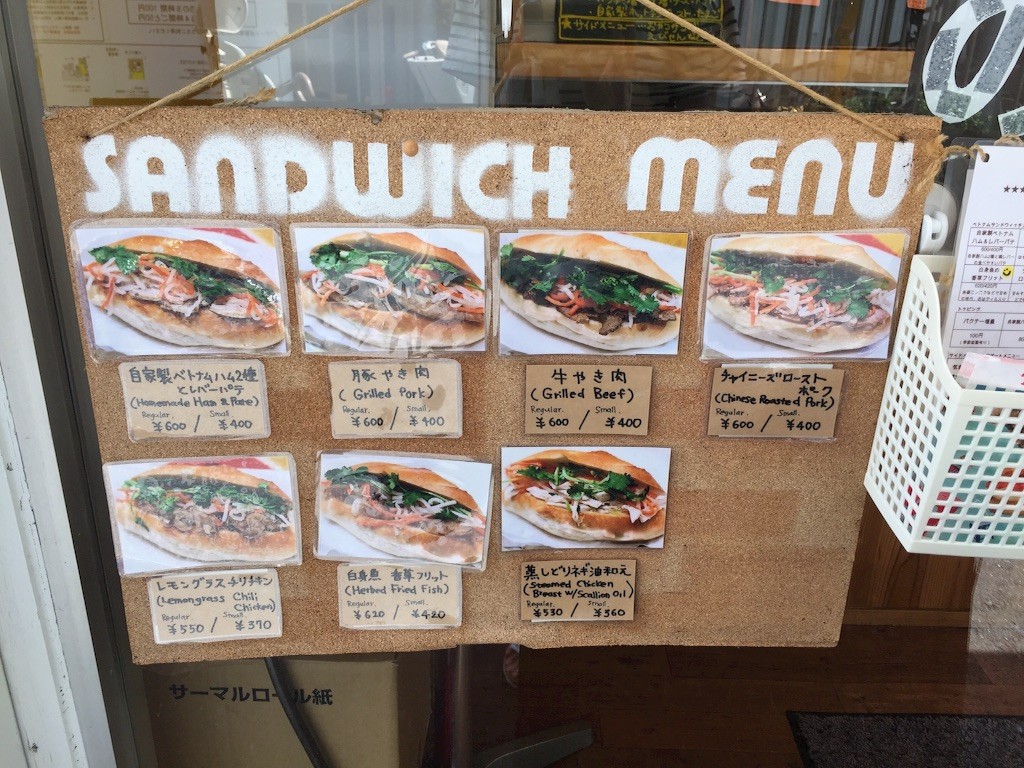 SANDWICH MENU
自家製ベトナムハム2種
とレバーパテ
(Homemade Ham & Pate)
Regular. Small.
¥600 / ¥400
豚やき肉
(Grilled Pork)
Regular. Small.
¥600 / ¥400
牛やき肉
(Grilled Beef)
Regular. Small.
¥600 / ¥400
チャイニーズロースト
ポーク
(Chinese Roasted Pork)
Regular. Small.
¥600 / ¥400
レモングラスチリチキン
(Lemongrass Chili
Chicken)
Regular. Small.
¥550 / ¥370
白身魚 香草フリット
(Herbed Fried Fish)
Regular. Small.
¥620 / ¥420
蒸しどりネギ油和え
(Steamed Chicken
Breast w/Scallion Oil)
Regular. Small.
¥530 / ¥360
★サイドメニュー
サーマルロール紙
★★★
自家製ベトナム
ハム&レバーパテ
白身魚の
香草フリット